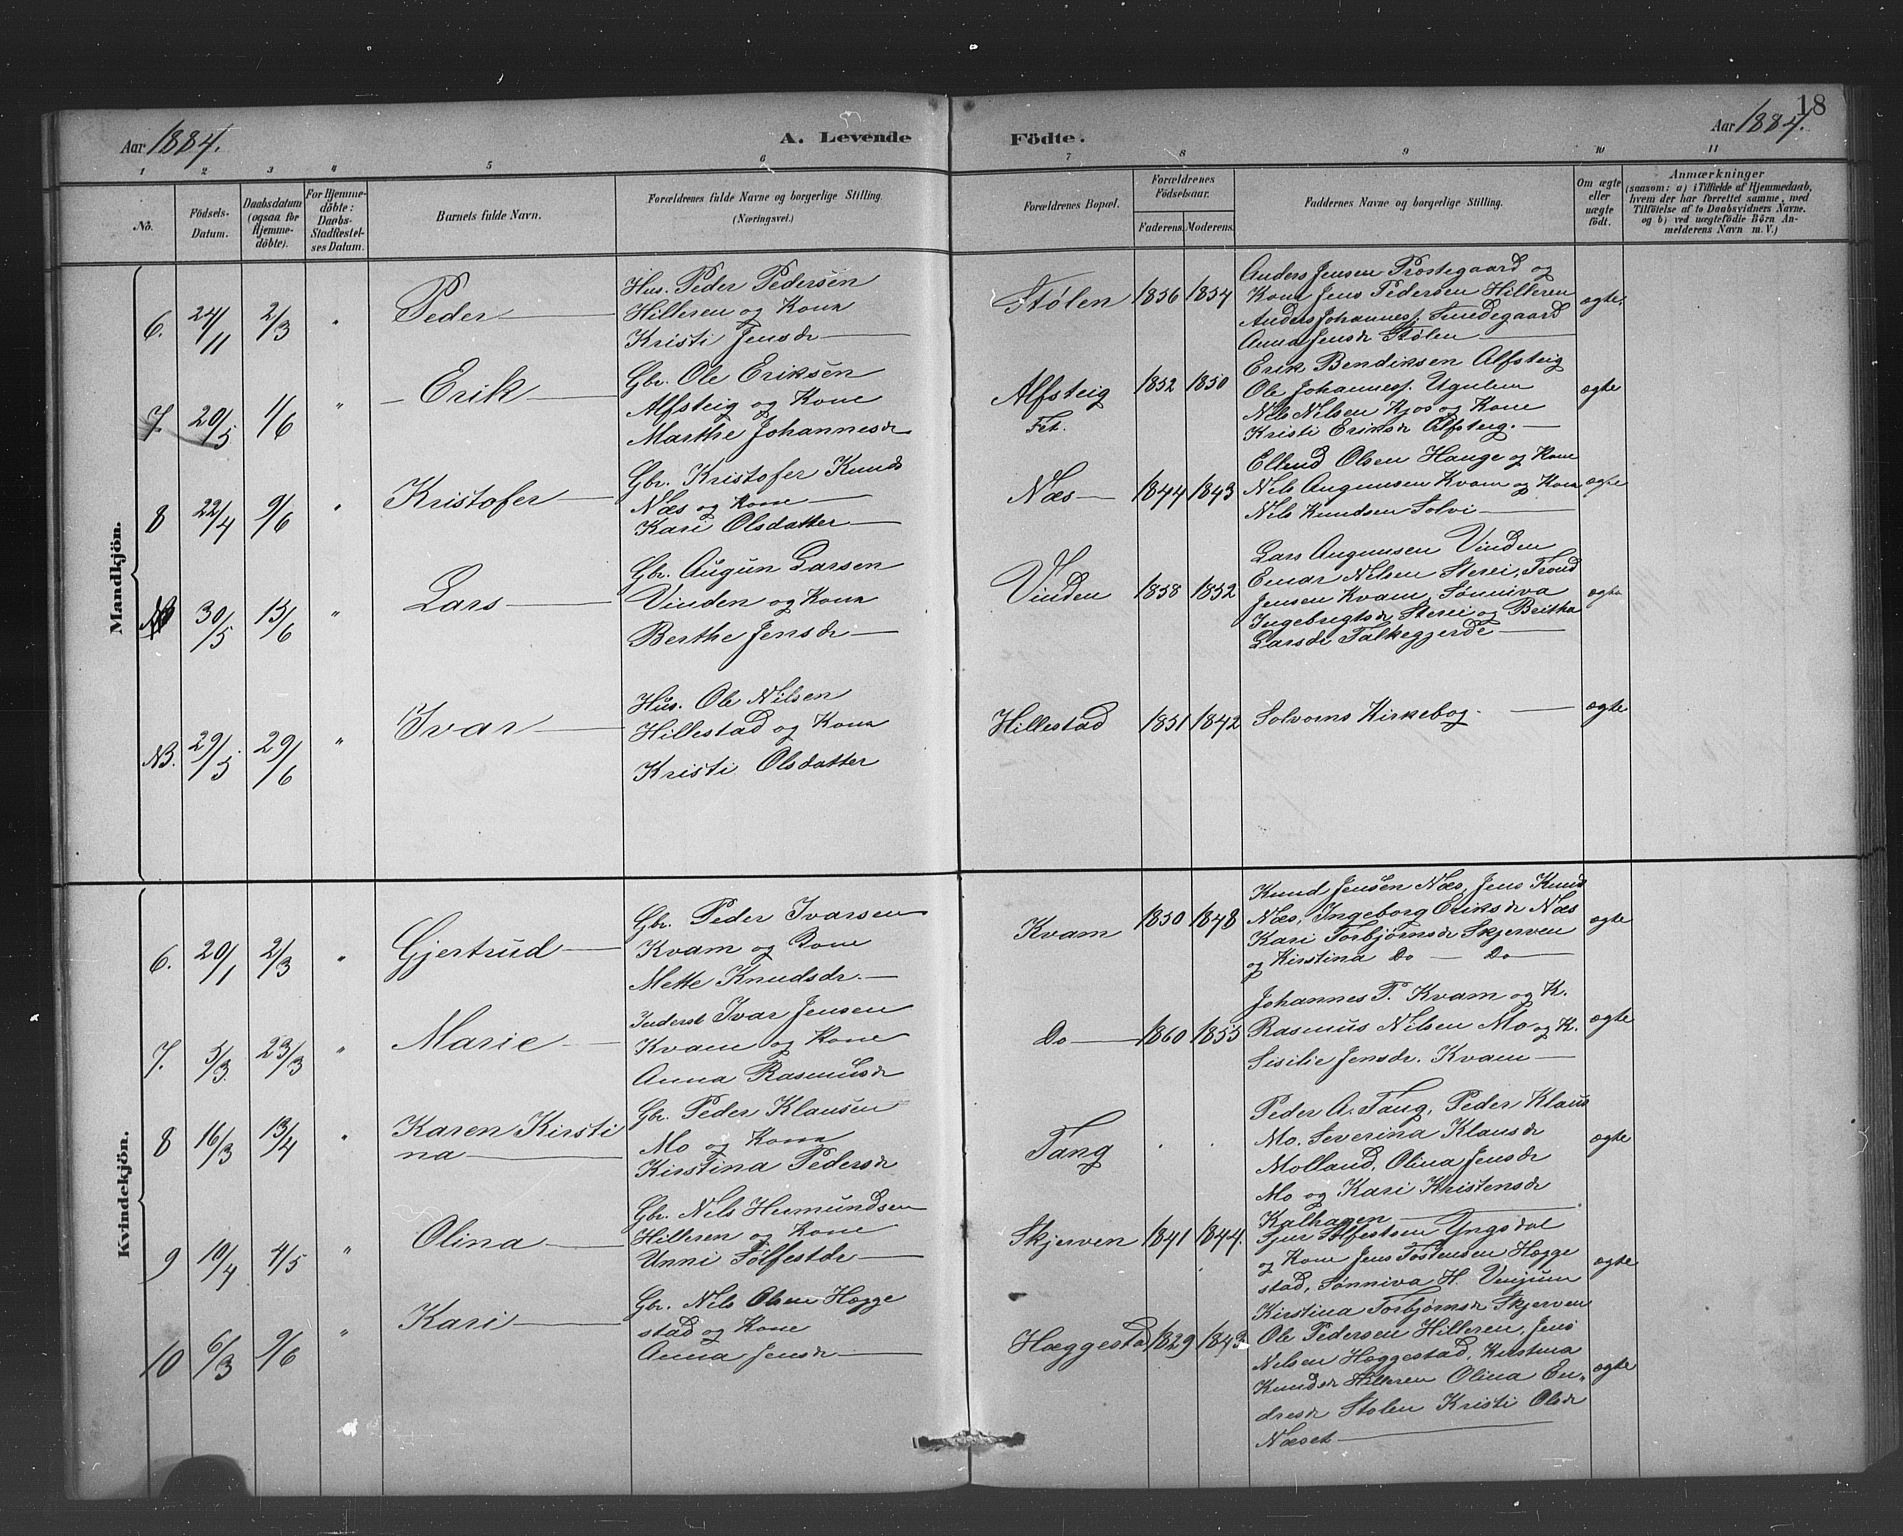 18
Aar 1884.
A. Levende
Födte.
Aar 1884.
1 2 3 4 5 6 7 8 9 10 11
No.
Födsels-
Datum.
Daabsdatum
(ogsaa for
Hjemme-
döbte).
For Hjemme-
döbte:
Daabs-
Stadfæstel-
ses Datum.
Barnets fulde Navn.
Forældrenes fulde Navne og borgerlige Stilling.
(Næringsvei.)
Forældrenes Bopæl.
Forældrenes
Födselsaar.
Faderens.
Moderens.
Faddernes Navne og borgerlige Stilling.
Om ægte
eller
uægte
födt.
Anmærkninger
(saasom: a) i Tilfælde af Hjemmedaab,
hvem der har forrettet samme, med
Tilföielse af to Daabsvidners Navne.
og b) ved uægtefödte Börn An-
melderens Navn m. V.)
Mandkjön.
6. 24/11 2/3 " Peder
Hus. Peder Pedersen
Hilleren og Kona
Kristi Jensdr
Stölen 1856 1854
Anders Jensen Prostegaard og
Kone Jens Pedersen Hilleren
Anders Johannesf. Smedegaard
Anna Jensdr Stölen
ægte.
7. 20/5 1/6 " Erik
Gbr. Ole Eriksen
Alfsteig og Kone
Marthe Johannesdr
Alfsteig
Fet.
1852 1850
Erik Bendiksen Alfsteig
Ole Johannesf. Ugulem
Nils Nilsen Kjos og Kone
Kristi Eriksdr Alfsteig.
ægte
8 22/4 9/6 " Kristofer
Gbr. Kristofer Knuds
Næs og Kone
Kari Olsdatter
Næs 1844 1843
Ellend Olsen Hauge og Kone
Nils Augunsen Kvam og Kona
Nils Knudsen Solvi
ægte
30/5 15/6 " Lars
Gbr. Augun Larsen
Vinden og Kona
Berthe Jensdr
Vinden 1858 1852
Lars Augunsen Vinden
Einar Nilsen Sterei, Trond
Jensen Kvam, Sønniva
Ingebrigtsdr Sterei og Britha
Larsdr Falkegjerde
ægte
NB. 29/5 29/6 " Ivar
Hus. Ole Nilsen
Hillestad og Kona
Kristi Olsdatter
Hillestad 1851 1842
Solvorns Kirkebog.
ægte
Kvindekjön.
6. 20/1 2/3 " Gjertrud
Gbr. Peder Ivarsen
Kvam og Kone
Mette Knudsdr.
Kvam 1850 1848
Knud Jensen Næs, Jens Knuds
Næs, Ingeborg Eriksdr Næs
Kari Torbjørnsdr Skjerven
og Kirstina Do — Do
ægte
7. 5/3 23/3 " Marie
Inderst Ivar Jensen
Kvam og Kone
Anna Rasmusdr
Do 1860 1855
Johannes P. Kvam og K.
Rasmus Nilsen Mo og K.
Sisilie Jensdr. Kvam
ægte
8 16/3 13/4 " Karen Kirsti
na
Gbr. Peder Klausen
Mo og Kona
Kirstina Pedersdr
Tang . .
Peder A. Tang, Peder Klaus
Mo. Severina Klausdr
Molland, Olina Jensdr
Mo og Kari Kristensdr
Kalhagen
ægte
9 19/4 4/5 " Olina
Gbr. Nils Hermundsen
Hilleren og Kone
Unni Sølfestdr
Skjerven 1841 1844.
Sjur Sølfestsen Yngsdal
og Kone Jens Tostensen Hægge
stad, Sønniva H. Venjum
Kirstina Torbjørnsdr Skjerven
ægte
10 6/3 9/6 " Kari
Gbr. Nils Olsen Hægge
stad og Kone
Anna Jensdr
Hæggestad 1829 1843
Ole Pedersen Hilleren, Jens
Nilsen Hæggestad, Kirstina
Knudsdr Hilleren Olina En-
dresdr Stolen Kristi Olsdr
Næset
ægte